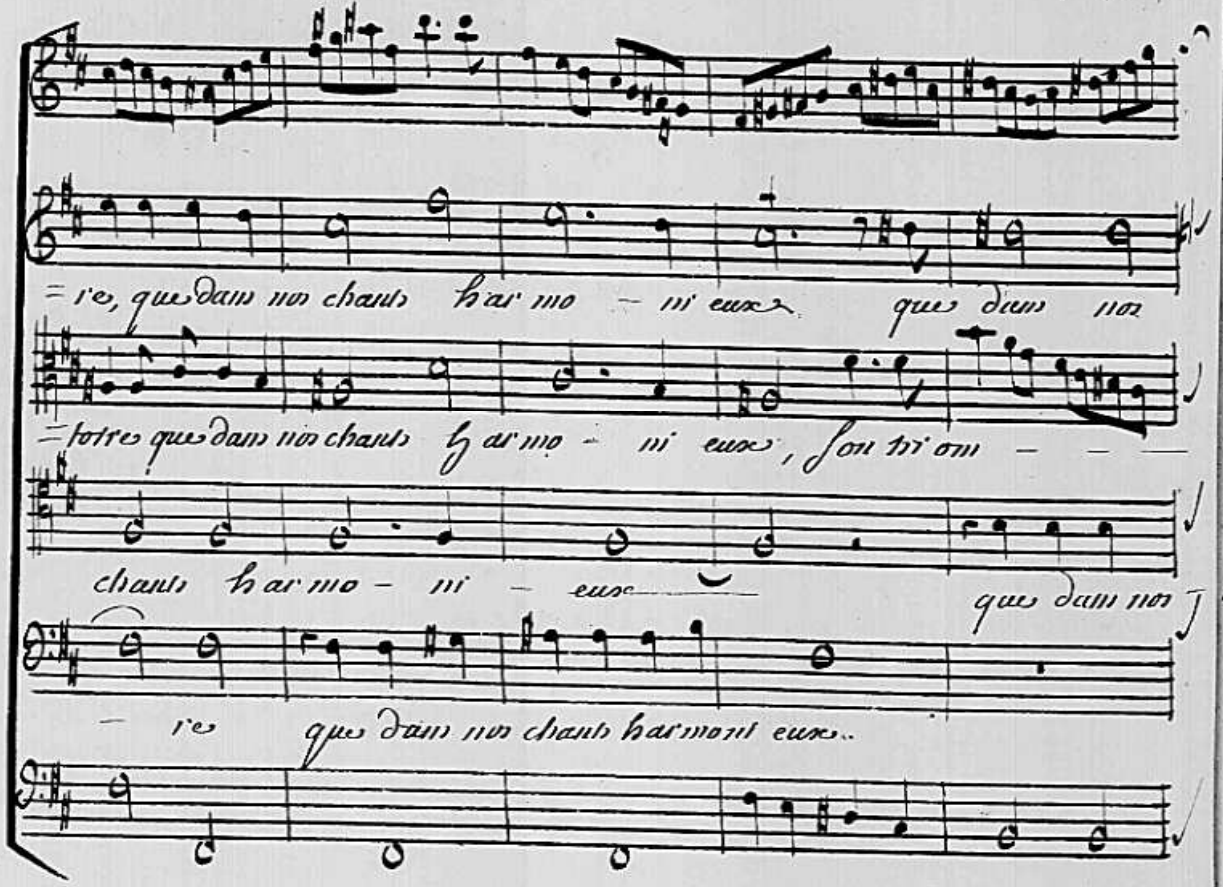 = re, que dans nos chants harmo - nieux que dans nos
= toire que dans nos chants harmo - ni eux, Son triom - - -
chants harmo - ni - eux que dans nos
- re que dans nos chants harmoni eux..